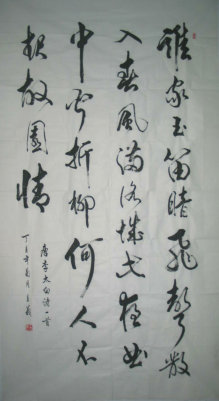 誰家玉笛暗飛聲散
入春風滿洛城此夜曲
中聞折柳何人不
起故園情
唐李太白詩一首